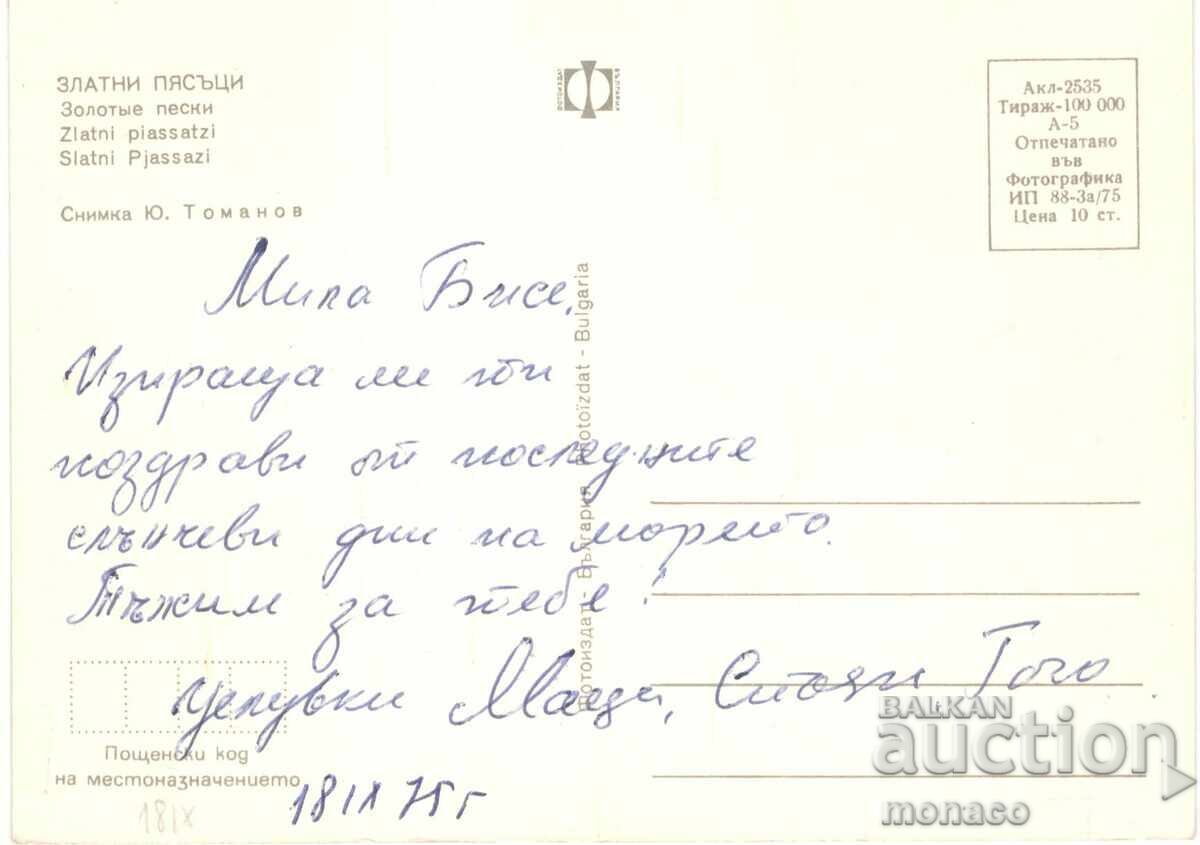 ЗЛАТНИ ПЯСЪЦИ
Золотые пески
Zlatni piassatzi
Slatni Pjassazi
Снимка Ю. Томанов
ФОТОИЗДАТ
БЪЛГАРИЯ
Акл-2535
Тираж-100 000
А-5
Отпечатано
във
Фотографика
ИП 88-3а/75
Цена 10 ст.
Мила Бисе,
Изпраща ми ти
поздрави от последните
слънчеви дни на морето.
Тъжим за тебе!
Целувки Маци, Стоян Гого
18 IX 75 г
Фотоиздат - България Photoïzdat - Bulgaria
Пощенски код
на местоназначението
18 IX
BALKAN
auction
monaco